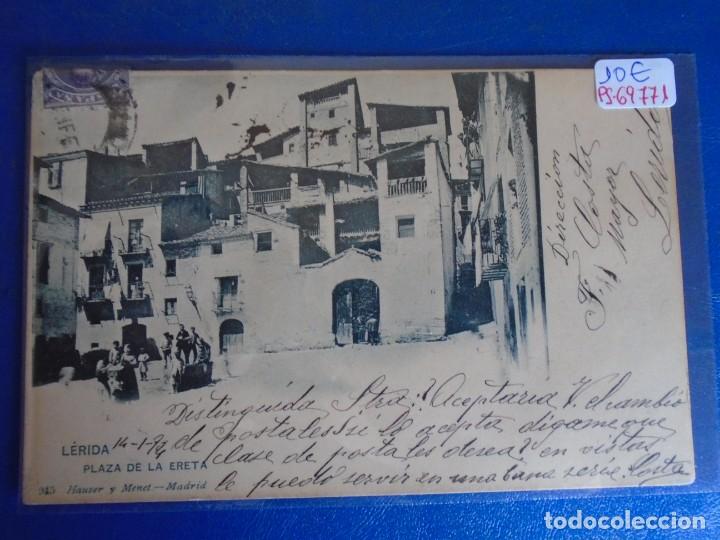 10€
PS-69771
Direccion
F. Costa
Mayor
Lerida
Distinguida Stra: ? Aceptaria V. el cambio
14-1-
de postales si lo acepta digame que
clase de postales desea? en vistas
le puedo servir en una buna serie. Costa
LÉRIDA
PLAZA DE LA ERETA
915 Hauser y Menet.—Madrid
todocoleccion.net